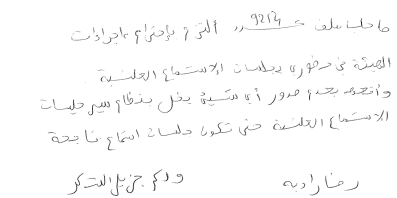 صاحب ملف عـــدد 9214 ألتزم بإحترام إجراءات
الهيئة في حضوري بجلسات الاستماع العلنية
وأتعهد بعدم صدور أي شيئ يخل بنظام سير جلسات
الاستماع العلنية حتى تكون جلسات استماع ناجحة
ولكم جزيل الشكر
رضا